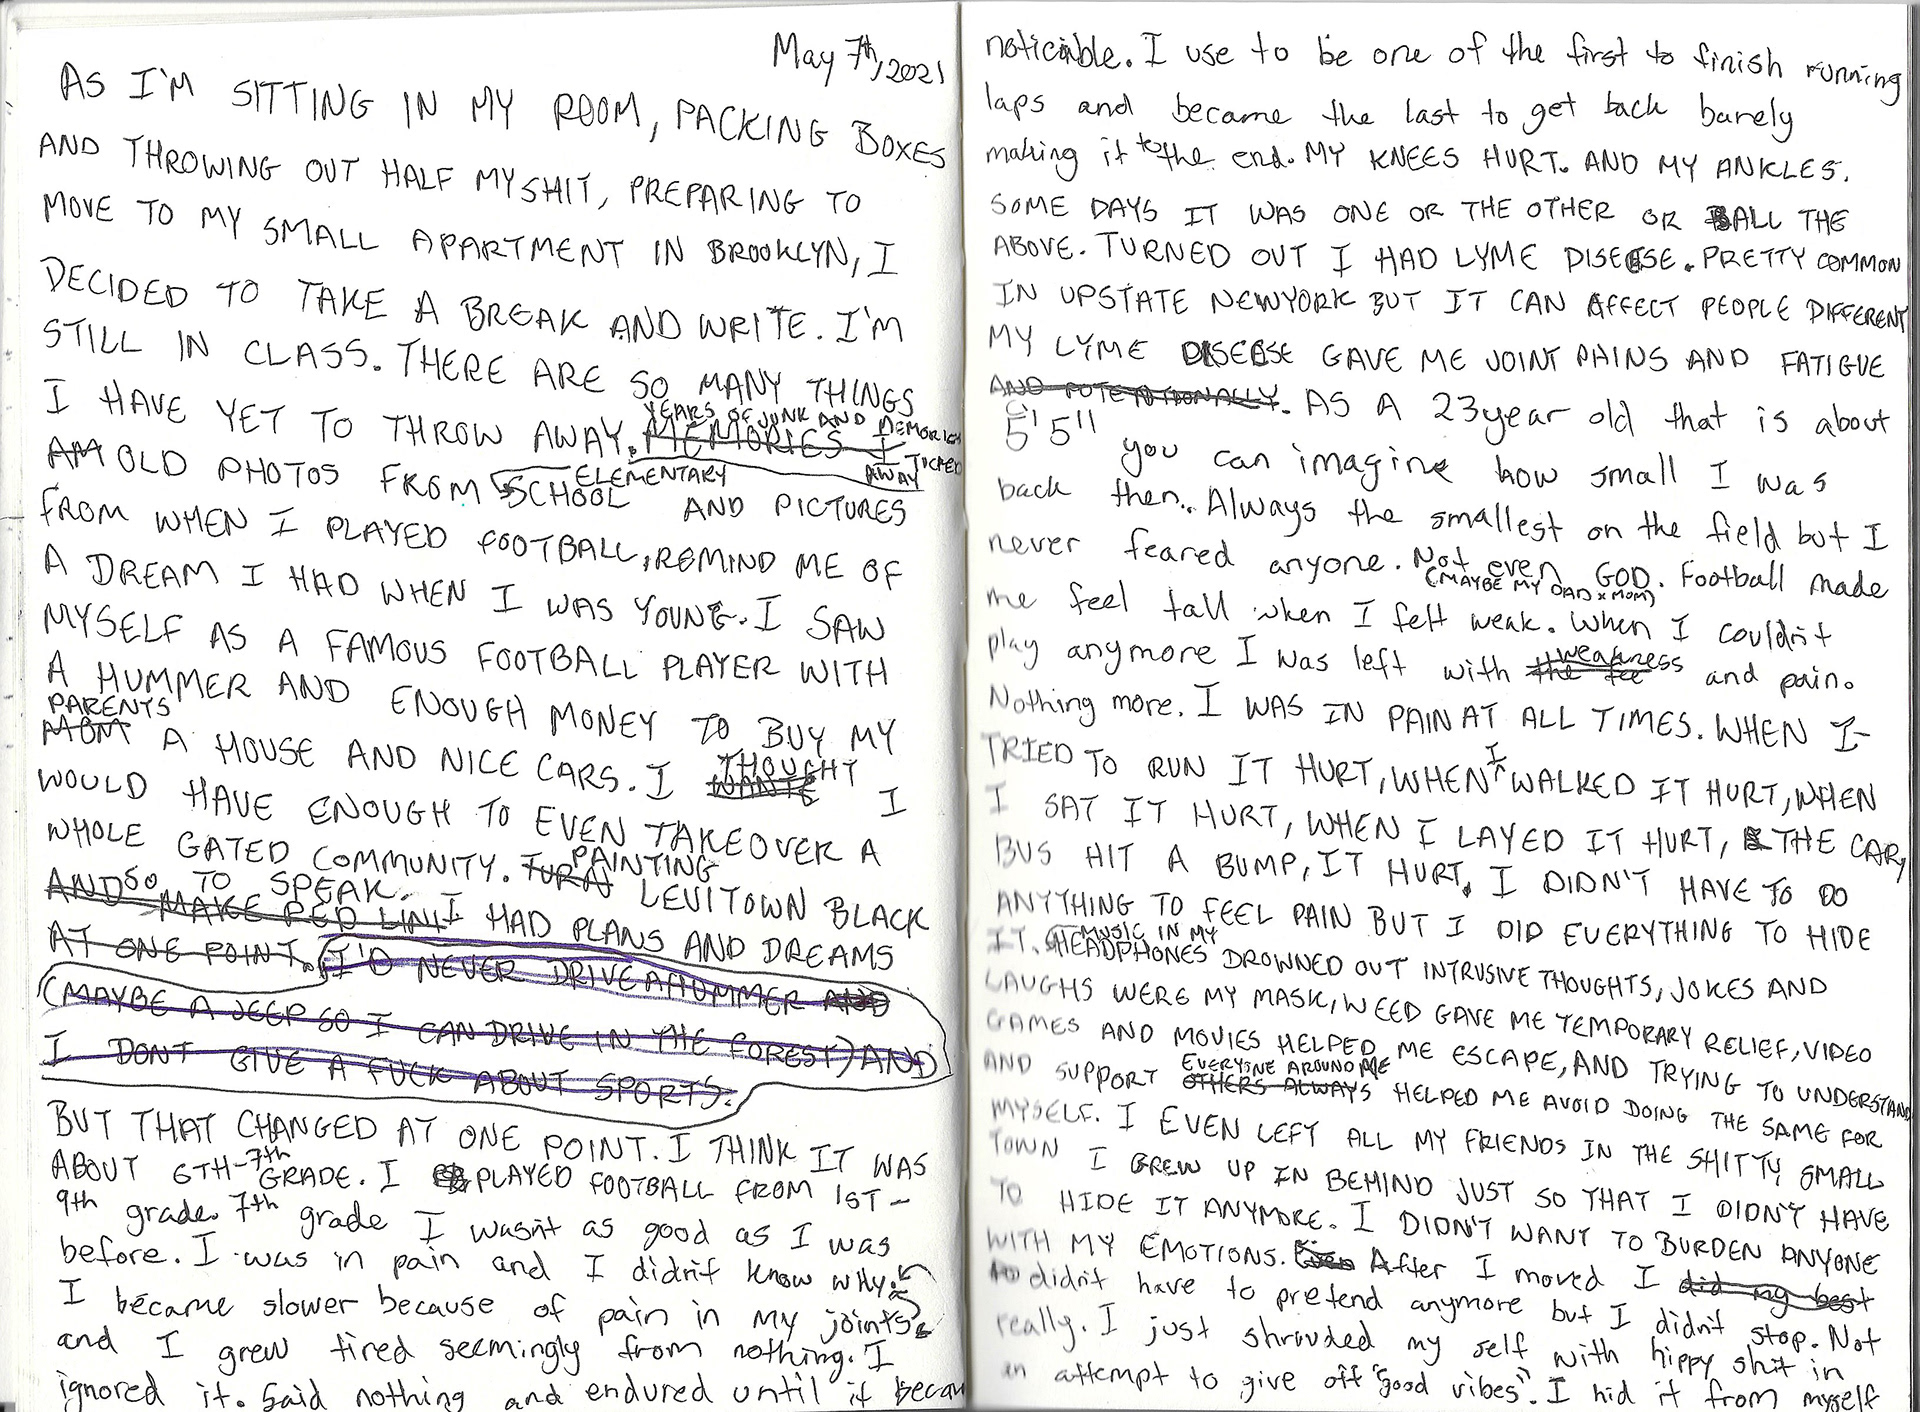 May 7th, 2021
AS I'M SITTING IN MY ROOM, PACKING BOXES
AND THROWING OUT HALF MY SHIT, PREPARING TO
MOVE TO MY SMALL APARTMENT IN BROOKLYN, I
DECIDED TO TAKE A BREAK AND WRITE. I'M
STILL IN CLASS. THERE ARE SO MANY THINGS
I HAVE YET TO THROW AWAY. MEMORIES I
YEARS OF JUNK AND MEMORIES TUCKED AWAY
AM OLD PHOTOS FROM SCHOOL AND PICTURES
ELEMENTARY
FROM WHEN I PLAYED FOOTBALL, REMIND ME OF
A DREAM I HAD WHEN I WAS YOUNG. I SAW
MYSELF AS A FAMOUS FOOTBALL PLAYER WITH
A HUMMER AND ENOUGH MONEY TO BUY MY
PARENTS
MOM A HOUSE AND NICE CARS. I WANTE I
THOUGHT
WOULD HAVE ENOUGH TO EVEN TAKEOVER A
WHOLE GATED COMMUNITY. TURN LEVITOWN BLACK
PAINTING
SO TO SPEAK.
AND MAKE RED LINI I HAD PLANS AND DREAMS
AT ONE POINT. I'D NEVER DRIVE A HUMMER AND
(MAYBE A JEEP SO I CAN DRIVE IN THE FOREST) AND
I DONT GIVE A FUCK ABOUT SPORTS.
BUT THAT CHANGED AT ONE POINT. I THINK IT WAS
ABOUT 6TH-7th GRADE. I PLAYED FOOTBALL FROM 1ST-
9th grade. 7th grade I wasn't as good as I was
before. I was in pain and I didn't know why.
I became slower because of pain in my joints
and I grew tired seemingly from nothing. I
ignored it. Said nothing and endured until it becam
noticible. I use to be one of the first to finish running
laps and became the last to get back barely
making it to the end. MY KNEES HURT. AND MY ANKLES.
SOME DAYS IT WAS ONE OR THE OTHER OR ALL THE
ABOVE. TURNED OUT I HAD LYME DISEESE. PRETTY COMMON
IN UPSTATE NEWYORK BUT IT CAN AFFECT PEOPLE DIFFERENT
MY LYME DISEESE GAVE ME JOINT PAINS AND FATIGUE
AND POTENTIONALLY. AS A 23 year old that is about
5'5" you can imagine how small I was
back then.. Always the smallest on the field but I
never feared anyone. Not even GOD. Football made
(MAYBE MY DAD x MOM)
me feel tall when I felt weak. When I couldn't
play anymore I was left with the fee and pain.
weakness
Nothing more. I WAS IN PAIN AT ALL TIMES. WHEN I
TRIED TO RUN IT HURT, WHEN I WALKED IT HURT, WHEN
I SAT IT HURT, WHEN I LAYED IT HURT, THE CAR,
BUS HIT A BUMP, IT HURT. I DIDN'T HAVE TO DO
ANYTHING TO FEEL PAIN BUT I DID EVERYTHING TO HIDE
MUSIC IN MY
IT. HEADPHONES DROWNED OUT INTRUSIVE THOUGHTS, JOKES AND
LAUGHS WERE MY MASK, WEED GAVE ME TEMPORARY RELIEF, VIDEO
GAMES AND MOVIES HELPED ME ESCAPE, AND TRYING TO UNDERSTAND
EVERYONE AROUND ME
AND SUPPORT OTHERS ALWAYS HELPED ME AVOID DOING THE SAME FOR
MYSELF. I EVEN LEFT ALL MY FRIENDS IN THE SHITTY SMALL
TOWN I GREW UP IN BEHIND JUST SO THAT I DIDN'T HAVE
TO HIDE IT ANYMORE. I DIDN'T WANT TO BURDEN ANYONE
WITH MY EMOTIONS. Even After I moved I did my best
to didn't have to pretend anymore but I didn't stop. Not
really. I just shrouded my self with hippy shit in
an attempt to give off "good vibes". I hid it from myself